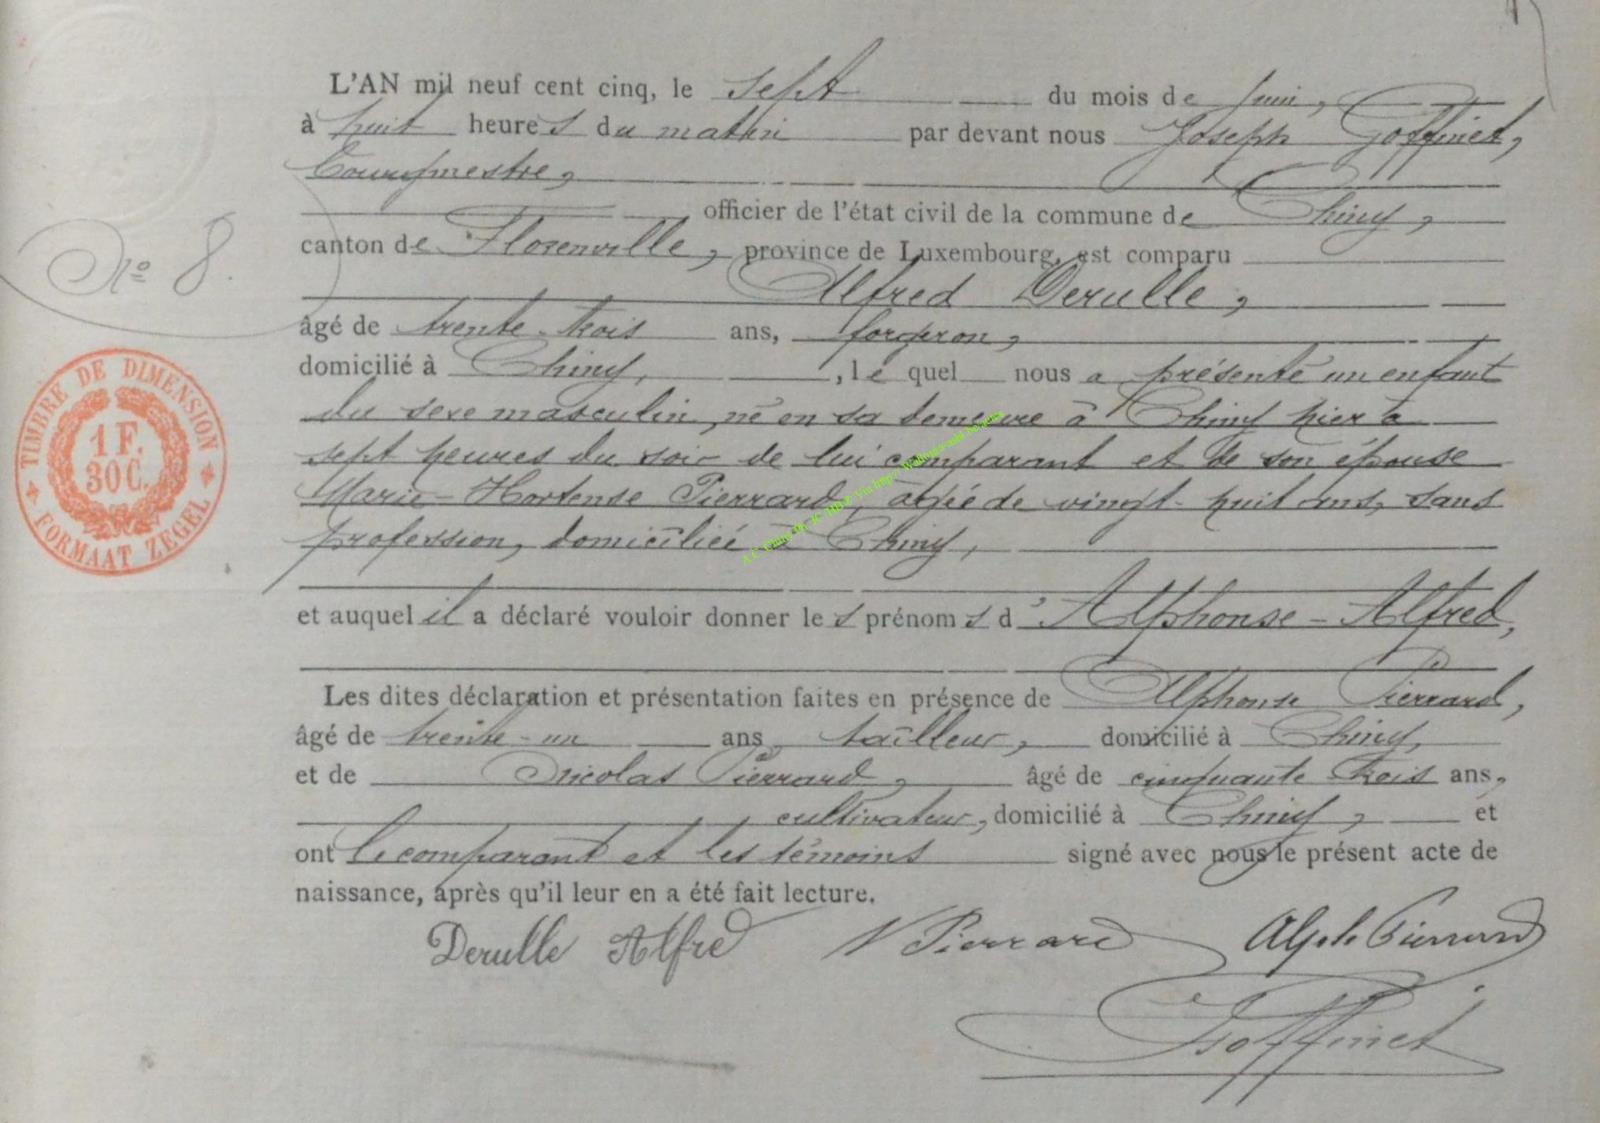 L'AN mil neuf cent cinq, le sept du mois de juin,
à huit heures du matin par devant nous Joseph Goffinet,
Bourgmestre,
officier de l'état civil de la commune de Chiny,
canton de Florenville, province de Luxembourg, est comparu
Alfred Derulle,
âgé de trente-trois ans, forgeron,
domicilié à Chiny, , le quel nous a présenté un enfant
du sexe masculin, né en sa demeure à Chiny hier à
sept heures du soir de lui comparant et de son épouse
Marie-Hortense Pierrard, âgée de vingt-huit ans, sans
profession, domiciliée à Chiny,
et auquel il a déclaré vouloir donner les prénoms d'Alphonse-Alfred,
Les dites déclaration et présentation faites en présence de Alphonse Pierrard,
âgé de trente-un ans, tailleur, domicilié à Chiny,
et de Nicolas Pierrard, âgé de cinquante trois ans,
cultivateur, domicilié à Chiny, et
ont le comparant et les témoins signé avec nous le présent acte de
naissance, après qu'il leur en a été fait lecture.
Derulle Alfred N Pierrard Alph Pierrard
Goffinet
No 8.
TIMBRE DE DIMENSION
1 F.
30 C.
FORMAAT ZEGEL